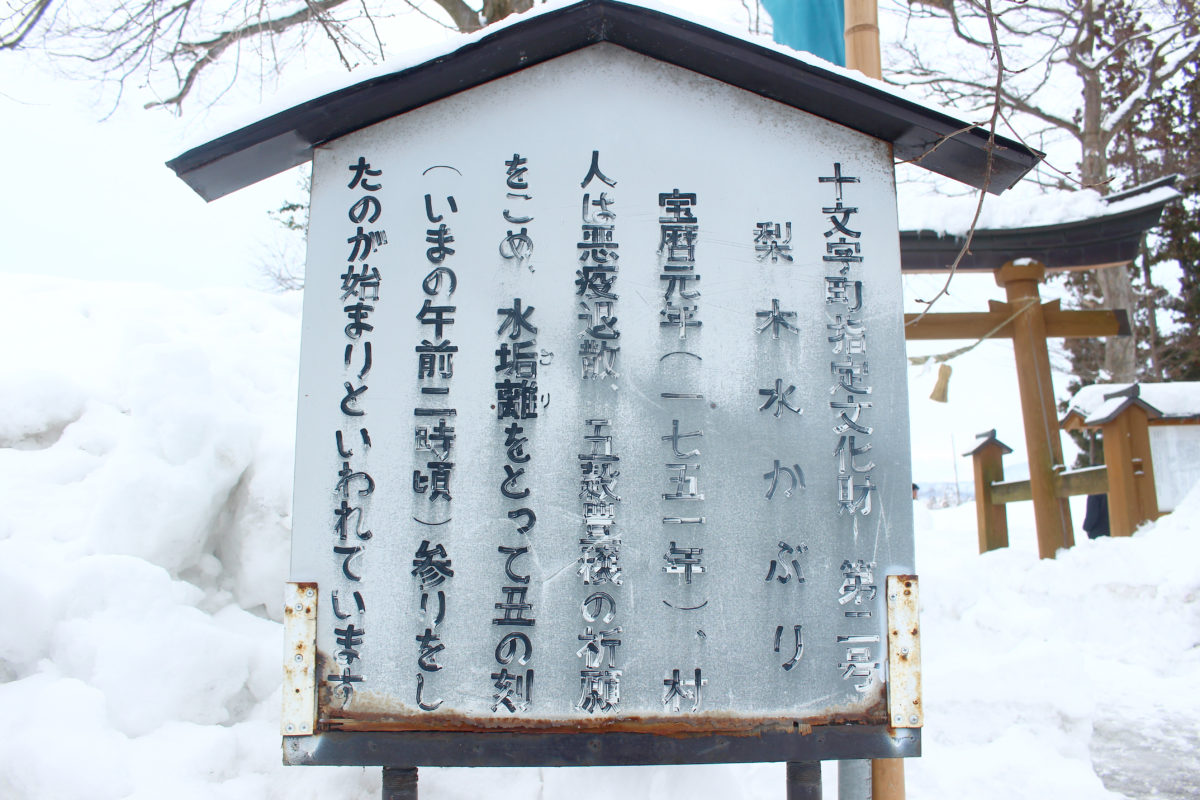 十文字町指定文化財 第二号
梨木水かぶり
宝暦元年(一七五一年)、村
人は悪疫退散、五穀豊穣の祈願
をこめ、水垢離をとって丑の刻
ごり
(いまの午前二時頃)参りをし
たのが始まりといわれています